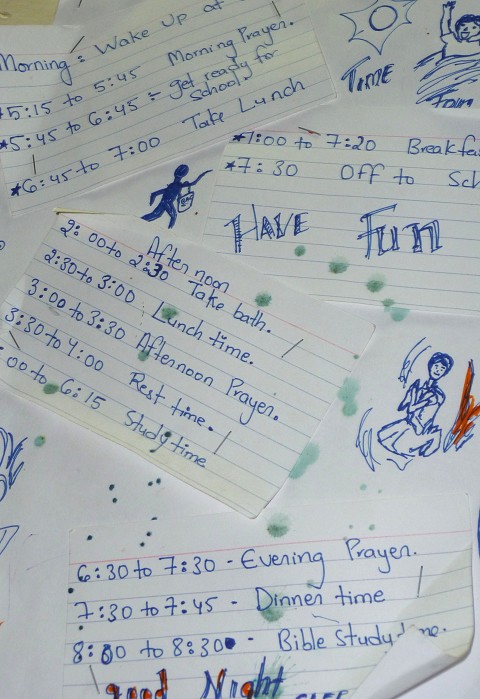 Morning: Wake Up at
*5:15 to 5:45 Morning Prayer.
*5:45 to 6:45 = get ready for
School
*6:45 to 7:00 Take Lunch
TIME
*7:00 to 7:20 Breakfa
*7:30 Off to Sch
HAVE Fun
Afternoon
2:00 to 2:30 Take bath.
2:30 to 3:00 Lunch time.
3:00 to 3:30 Afternoon Prayer.
3:30 to 4:00 Rest time.
:00 to 6:15 Study time
6:30 to 7:30 - Evening Prayer.
7:30 to 7:45 - Dinner time
8:00 to 8:30 - Bible Study time.
Good Night